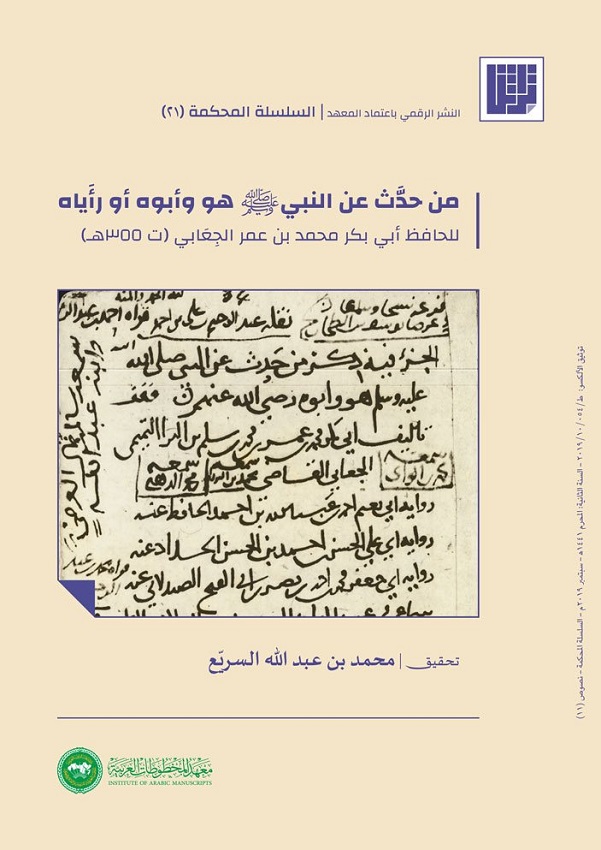 تراثنا
النشر الرقمي باعتماد المعهد | السلسلة المحكمة (٢١)
من حدَّث عن النبي ﷺ هو وأبوه أو رأَياه
للحافظ أبي بكر محمد بن عمر الجِعَابي (ت ٣٥٥هـ)
لله الحمد والمنه
نقله عبد الرحيم بن علي بن احمد
الجزء فيه ذكر من حدث عن النبي صلى الله
عليه وسلم هو وابوه رضي الله عنهم
تاليف ابي بكر محمد بن عمر بن محمد بن سلم بن البرا التميمي
الجعابي القاضي
روايه ابي نعيم احمد بن عبد الله بن احمد الحافظ عنه
روايه ابي علي الحسن بن احمد بن الحسن الحداد عنه
روايه ابي جعفر محمد بن احمد بن نصر بن ابي الفتح الصيدلاني عنه
تحقيق | محمد بن عبد الله السريّع
معهد المخطوطات العربية
INSTITUTE OF ARABIC MANUSCRIPTS
توثيق الألكسو: ط/٠٥٤/١٠/٢٠١٩ – السنة الثانية: المحرم ١٤٤١هـ – سبتمبر ٢٠١٩م – السلسلة المحكمة – نصوص (١١)